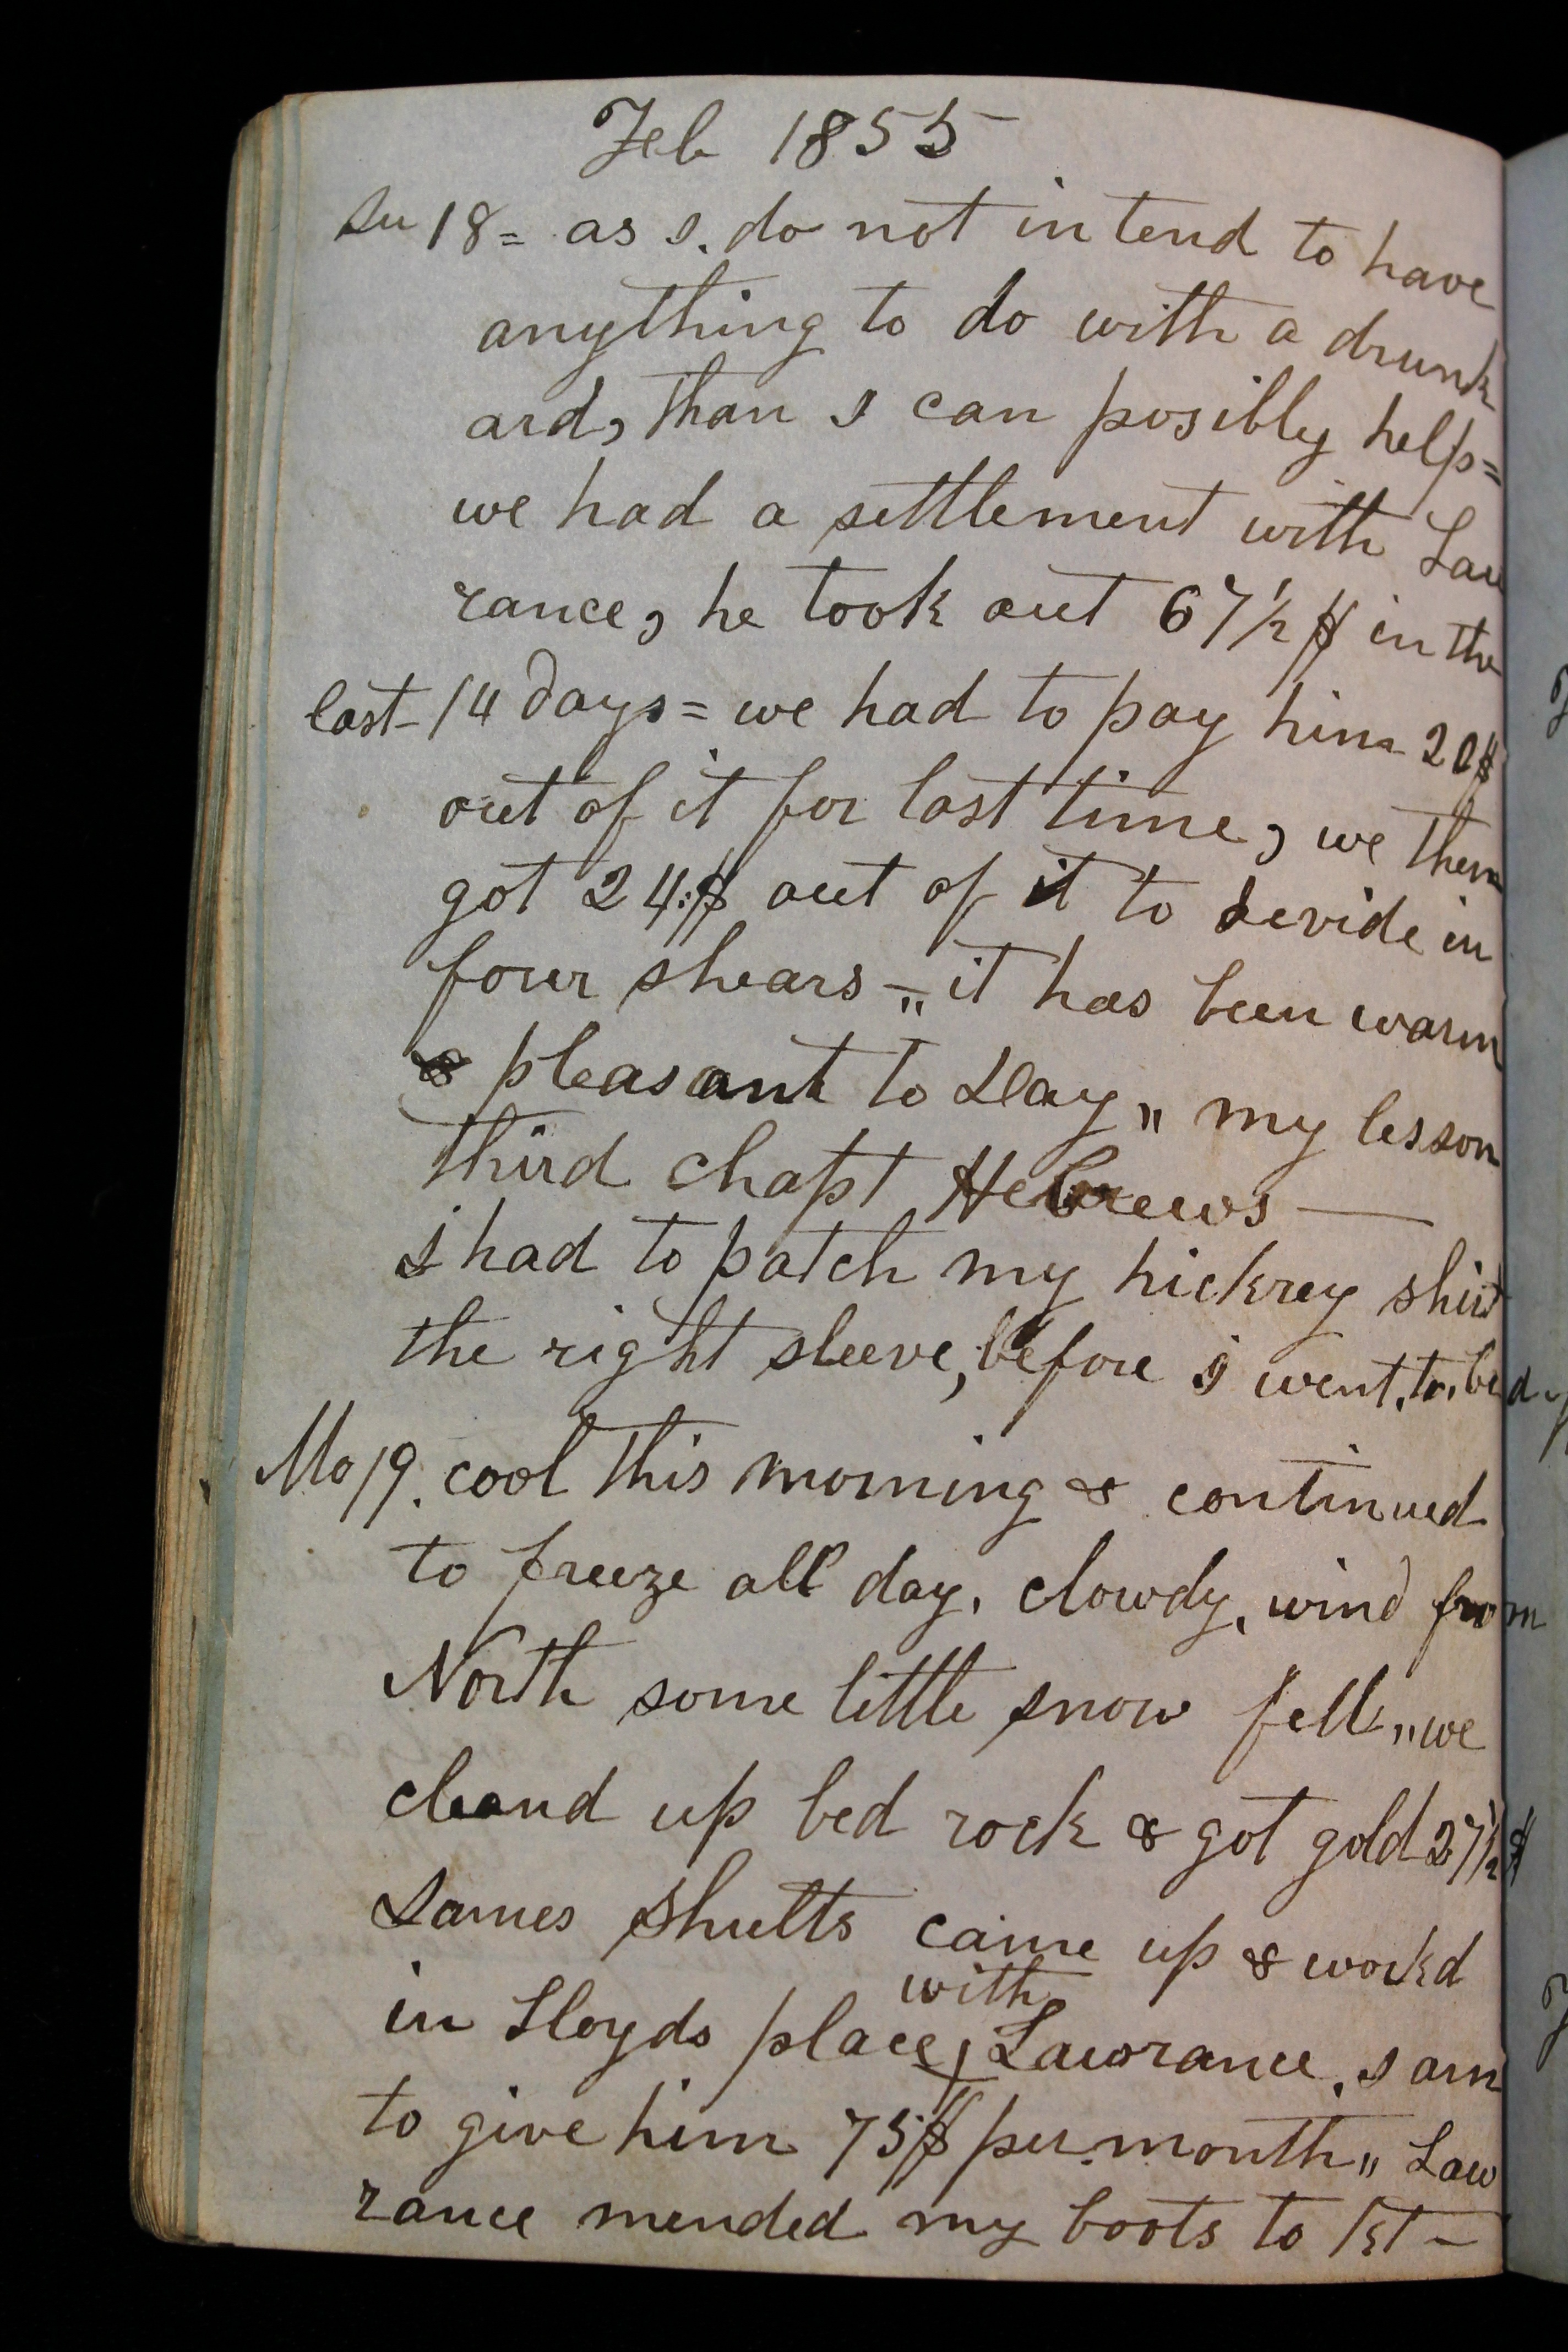 Feb 1855
Su 18= as I. do not intend to have
anything to do with a drunk
ard, than I can posibly help=
we had a settlement with Law
rance, he took out 67½ $ in the
last 14 days= we had to pay him 20$
out of it for last time, we then
got 24:$ out of it to devide in
four shears -„ it has been warm
& pleasant to Day „ my lesson
third chapt Hebrews —
I had to patch my hickrey shirt
the right sleeve, before I went, to, bed
Mo 19. cool this morning & continued
to freeze all day, clowdy, wind from
North some little snow fell „ we
cleand up bed rock & got gold 27½ $
James Shutts came up & workd
in Lloyds place, with Lawrance, I am
to give him 75$ per month „ Law
rance mended my boots to